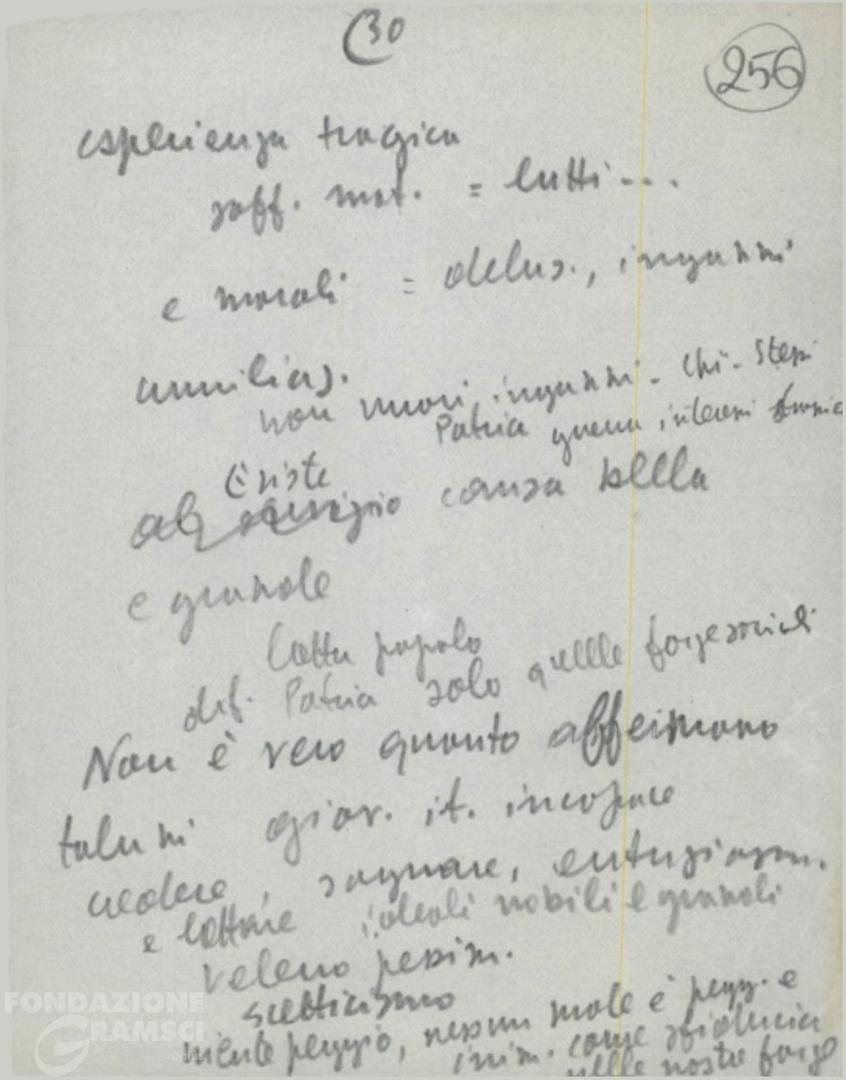 30
256
esperienza tragica
soff. mat. = lutti...
e morali = delus., inganni
umiliaz.
non nuovi inganni - chi - stessi
Patria guerra interessi
Esiste
al servizio causa bella
e grande
Lotta popolo
def. Patria solo quelle forze sociali
Non è vero quanto affermano
taluni giov. it. incapace
credere, sognare, entusiasm.
e lottare ideali nobili e grandi
veleno pessim.
scetticismo
niente peggio, nessun male è pegg. e
inim. come sfiducia
nelle nostre forze
FONDAZIONE
GRAMSCI